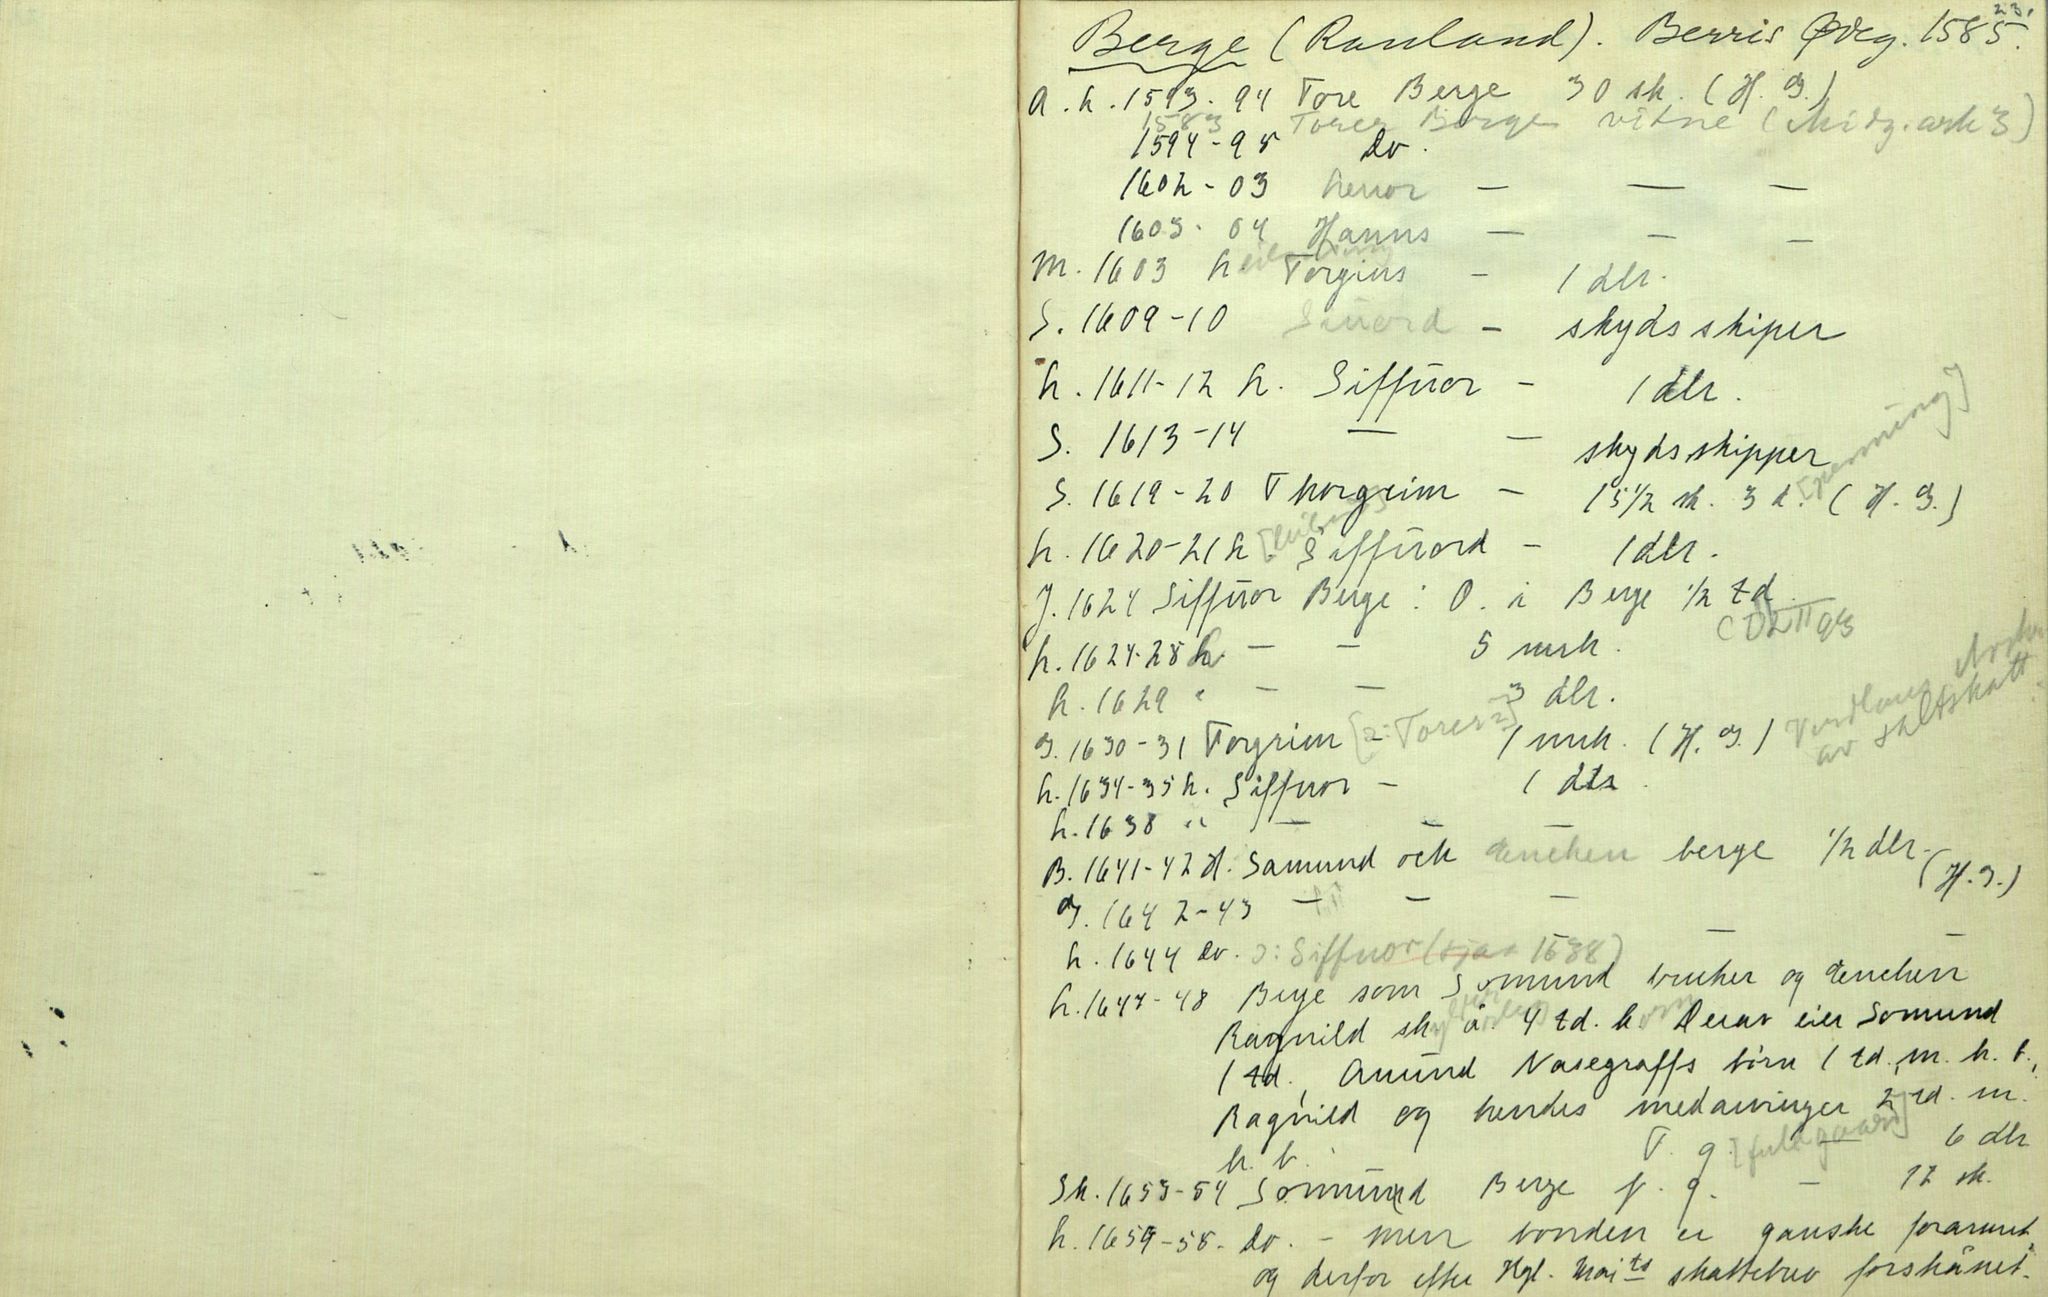 23.
Berge (Rauland). Berris Ødeg. 1585.
A. h. 1593-94 Tore Berge 30 sk. (H. G.)
1583 Torer Berge vitne (
1594-95 Do.
1602-03 — — —
1603-04 Hanns — — —
M. 1603 h. Torgius — 1 dlr.
S. 1609-10 Siuord — skyds skiper
h. 1611-12 h. Siffuor — 1 dlr.
S. 1613-14 — — skydsskipper
S. 1619-20 Thorgrim — 15 1/2 sk. 3 d. [penning] (H. G.)
h. 1620-21 h. Siffuord — 1 dlr.
J. 1624 Siffuor Berge: O. i Berge 1/2 td.
h. 1624-28 h. — — 5 mrk.
h. 1629 " — — 3 dlr.
G. 1630-31 Torgrim [ɔ: Torer?] — 1 mrk. (H. G.)
av skattskatt
h. 1634-35 h. Siffuor — 1 dlr.
h. 1638 " — — —
B. 1641-42 H. Samund och enchen berge 1/2 dlr. (H. G.)
G. 1642-43 — — — — —
h. 1644 Do. ɔ: Siffuor (sjaa 1638)
h. 1647-48 Berge som Somund bruker og enchen
Ragnild sk å. 4 td. k. Derav eier Somund
1 td., Amund Nasegraffs börn 1 td. m. h. b.,
Ragnild og hendes medarvinger 2 td. m.
h. b. F. g. [fuld gaard] — 6 dlr
Sk. 1653-54 Sommund Berge f. g. — 12 sk.
h. 1657-58. Do. - men bonden er ganske forarmet
og derfor efter Kgl. Maits skattebrev forskånet.